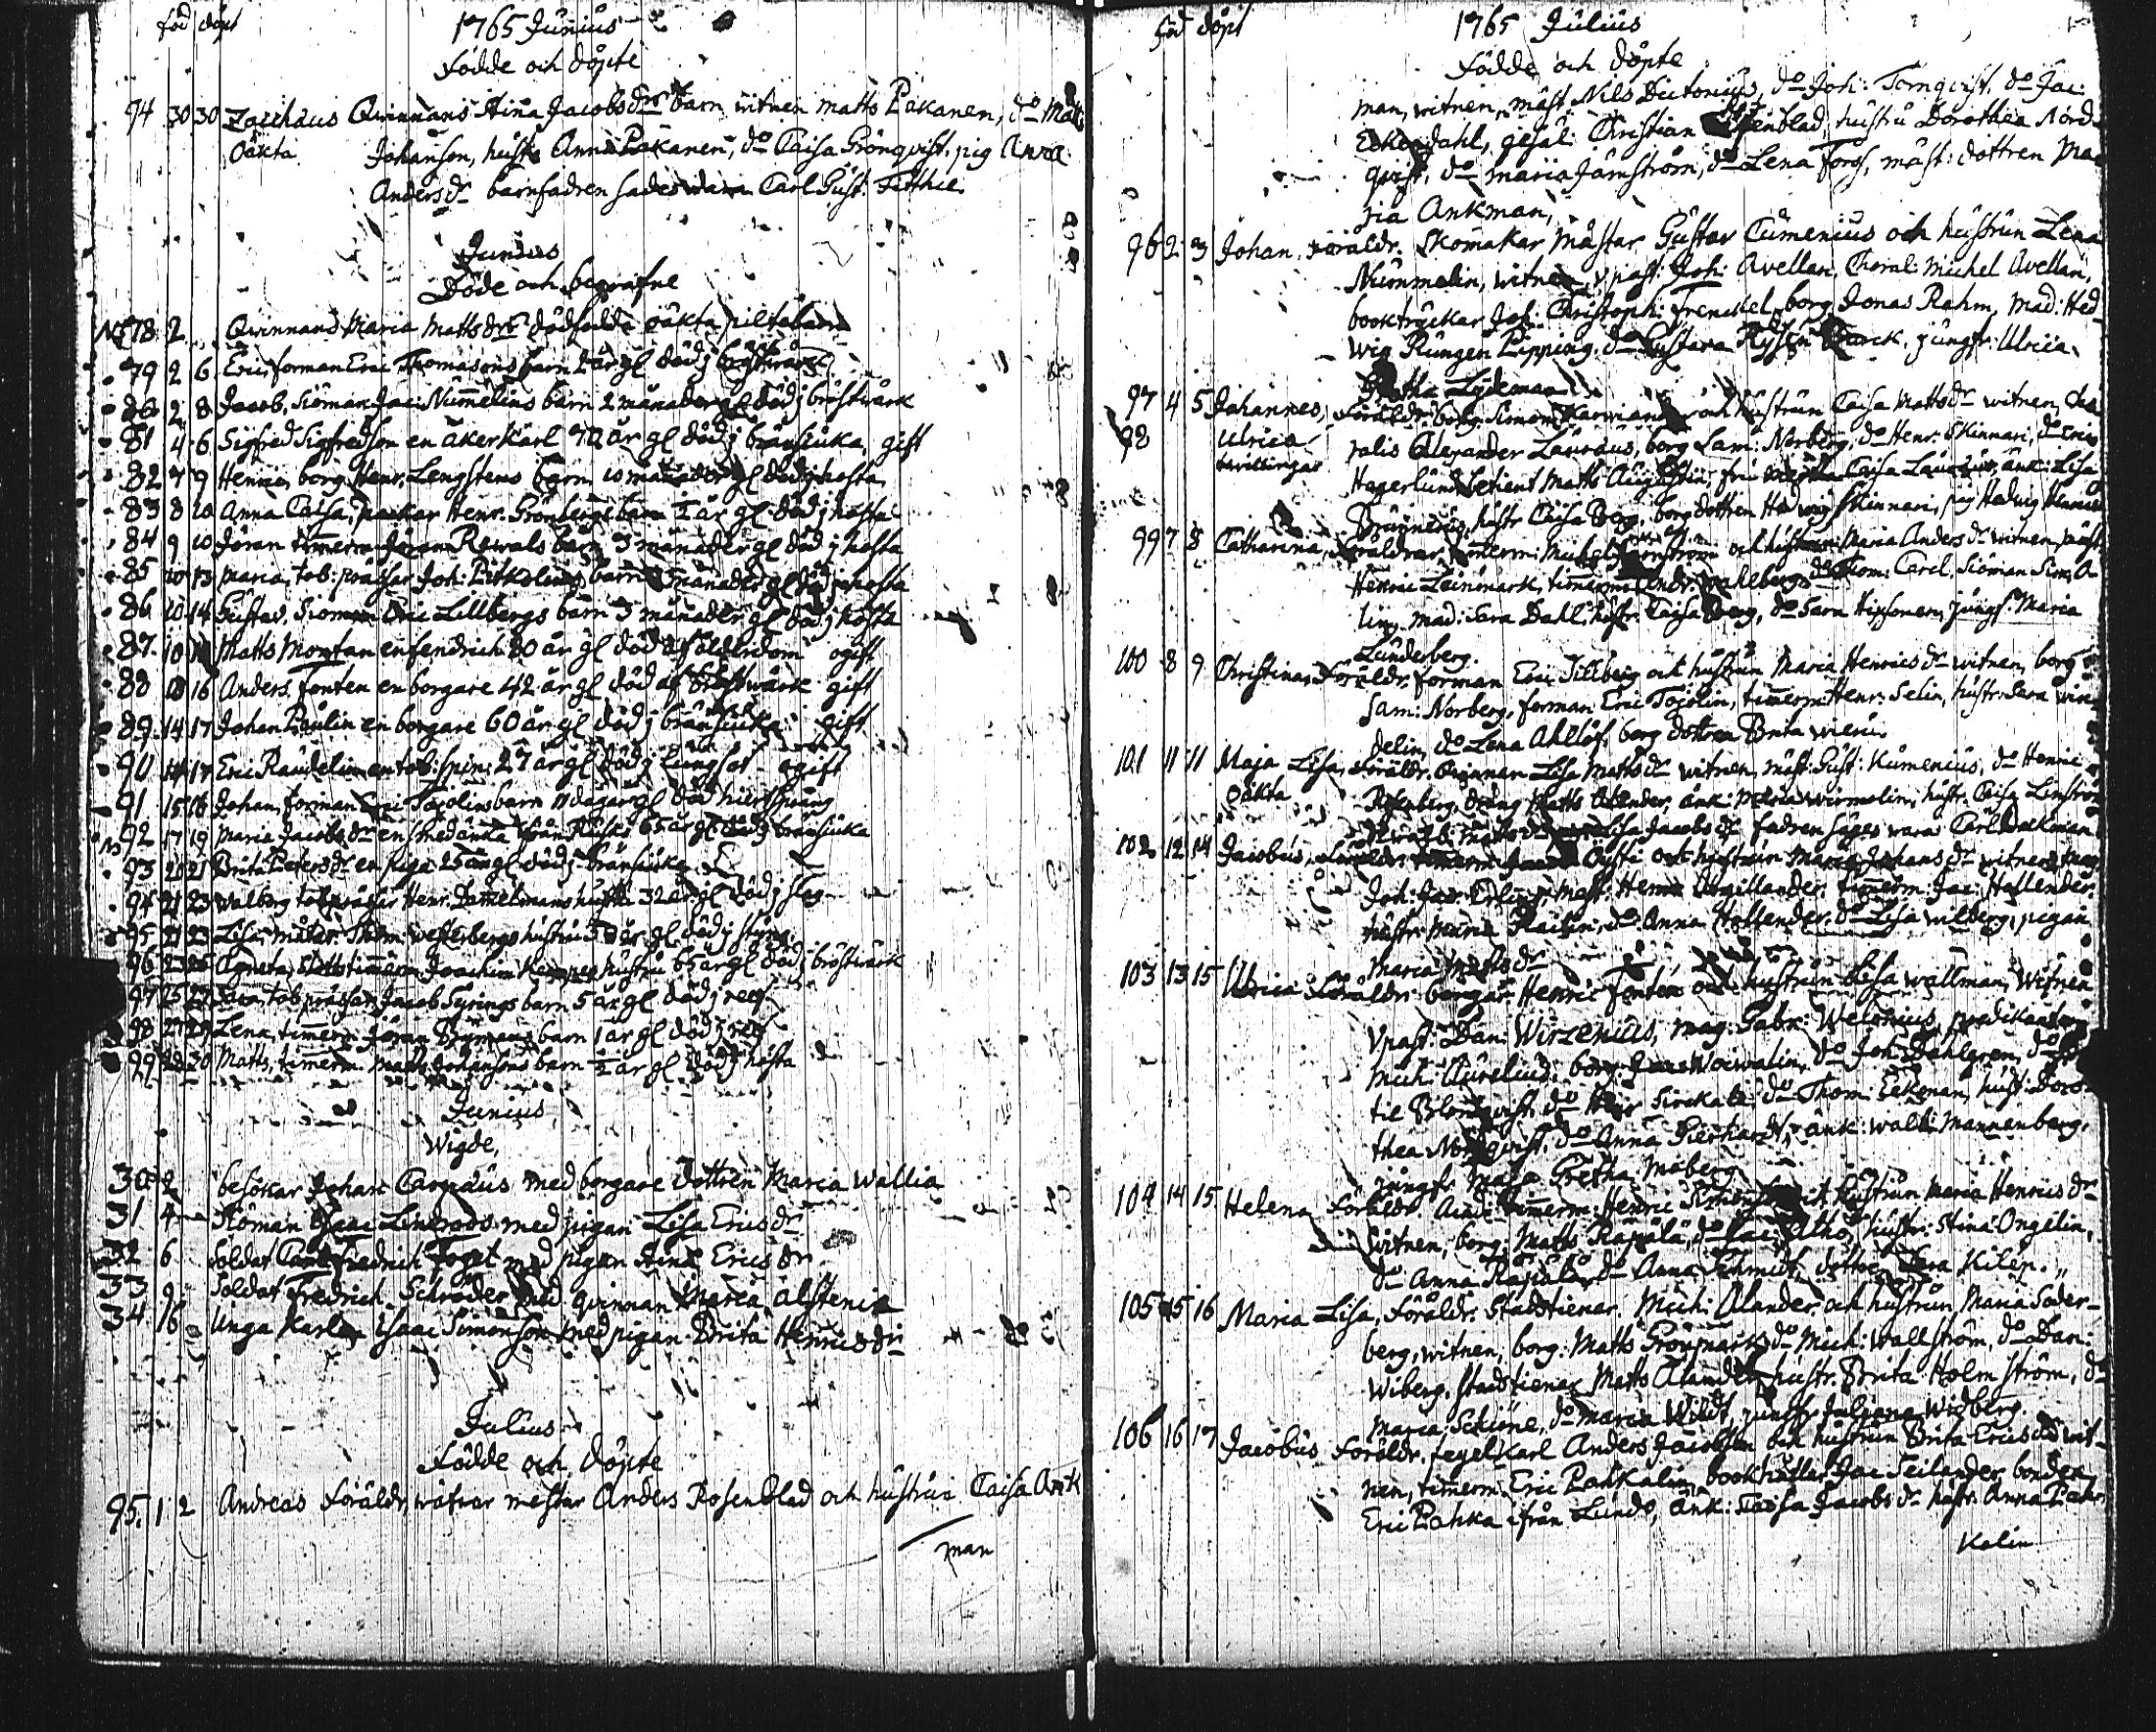 föd döpt 1765 Junius
födde och döpte
94 30 30 Zachæus Qwinnans Stina Jacobs drs barn witnen matts Pakanen, do Matts
Oäkta Johanson, hustr Anna Pakanen, do Caisa Grönqvist, pig Anna
Anders dr barnfadren sades wara Carl Gust: Fitthie.
Junius
Döde och begrafne
78 2 Qwinnans Maria Matts drs dödfödda oäkta piltabarn
79 2 6 Eric, forman Eric Thomasons barn 2 år gl död j bröstwärk
80 2 8 Jacob, Siöman Jac: Nummelins barn 2 månader gl död j bröstwärk
81 4 6 Sigfred Sigfredson en åkerkarl 70 år gl död j bränsiuka, gift
82 7 9 Henric, borg: Henr. Lengstens barn 10 månader gl död j hosta
83 8 10 Anna Caisa, packar Henr. Grönbergs barn 1/2 år gl död j hosta
84 9 10 Jöran timerm: Jöran Rewals barn 3 månader gl död j hosta
85 10 13 maria, tob: prässar Joh: Pitkolins barn månader gl död j hosta
86 10 14 Gustav, Sioman Eric Lillbergs barn 3 månader gl död j hosta
87 10 Matts Montan en fendrich 80 år gl död af ålderdom ogift
88 10 16 Anders Fonten en borgare 42 år gl död af bröstwärk gift
89 14 17 Johan Paulin en borgare 60 år gl död j bränsiuka gift
90 14 17 Eric Raudelin en tob: spin: 27 år gl död j lungsot ogift
91 15 16 Johan, forman Eric Tojolins barn 11 dagar gl död
92 17 19 Maria Jacobs dr en enka från Rusko 65 år gl död j bränsiuka
93 20 21 Brita Peters dr en piga 25 år gl död j bränsiuka
94 21 23 Walborg tobprässar Henr. Dammelmans hustru 32 år gl död j slag
95 21 23 Lisa, mätar Thom: Westerbergs hustru år gl död j styng
96 23 25 Agneta, Slottstimerm Joachim hustru 65 år gl död j bröstwärk
97 25 27 Sara, tob prässar Jacob Syrings barn 5 år gl död j ref
98 27 29 Lena, timerm: Jöran Brymans barn 1 år gl död j ref
99 28 30 Matts, timerm: Matts Johansons barn 1/2 år gl död j hosta
Junius
Wigde,
30 2 besökar Johan Carpæus med borgare dottren Maria Wallia
31 4 Siöman Isaac Lindroos med pigan Lisa Erics dr
32 6 Soldat Carl Friedrich Fogt med pigan Stina Erics dr
33 9 Soldat Fredrich Schröder med qwinnan Maria Alstenia
34 16 Unga Karlen Isaac Simonson med pigan Brita Henrics dr
Julius
födde och döpte
95. 1 2 Andreas Föräldr, wäfvar mestar Anders Rosenblad och hustrun Caisa Ank
man
föd döpt 1765 Julius
födde och döpte
man, witnen, mäst. Nils Dictonius, do Joh: Tornqvist, do Jac:
Ekendahl, gesäl: Christian enblad, hustru Dorothea Nord-
qvist, do maria Jämström, do Lena Forss, mäst: dottren Ma-
ria Ankman,
96 2 3 Johan, Föräldr. Skomakar mästar Gustav Cumenius och hustrun Lena
Nummelin, witnen, v past: Joh: Avellan, Choral: Michel Avellan,
booktryckar Joh: Christoph: Frenckel, borg Jonas Rahm, Mad: Hed-
wig Rungen Pipping, do Gustava jungfr: Ulrica
Gretha Lydeman
97 4 5 Johannes, Föräldr: borg. Simon och hustrun Caisa Matts dr witnen,
98 Ulrica ralis Alexander Lauræus, borg Sam: Norberg, do Henr: Skinnari, do Eric
twillingar Hagerlund, betient Matts Augustin, fru Caisa Lauræus, änk: Lisa
Brunnerus, hustr Caisa Berg, borg dottren Hedwig Skinnari, pig Hedvig Henrics
99 7 8 Catharina, Föräldrar, timerm: Michel och hustrun Maria Anders dr witnen, mäst
Henric Leinmark, timerm: Andr: Wahlberg, do Thom: Carel, Siöman Sim: A-
lin, mad: Sara Dahl, hustr. Caisa Berg, do Sara jungf: Maria
Lunderberg.
100 8 9 Christina, Föräldr. forman Eric Tillberg och hustrun Maria Henrics dr witnen, borg
Sam: Norberg, forman Eric Tojolin, timerm: Henr: Selin, hustr: Sara
delin, do Lena Ahllöf, borg dottren Brita
101 11 11 Maja Lisa, Föräldr. Qwinnan Lisa Matts dr witnen, mäst: Gust: Kumenius, do Henric
oäkta Rosenberg, dräng Matts änk: Maria Wirmolin, hustr. Caisa Linström
Lisa Jacobs dr fadren säges wara Carl Backman
102 12 14 Jacobus, Föräldr. timerm och hustrun Maria Johans dr witnen, mag:
Joh: Jac: Erling, mäst: Henric Argillander, timerm: Jac: Hollender
hustr: Maria Railin, do Anna Hollender, do Lisa Wilberg, pigan
Maria Matts dr
103 13 15 Ulrica Föräldr: borgar Henric Fontén och hustrun Lisa Wallman, Witnen
V past: Dan: Wirzenius, mag: Gabr: Welonius, predikanten
Mich: Aurelius, borg: Jac: Woiwalin, do Joh: Dahlgren, do
til Blomqvist, do Sirckala, do Thom: Eekman, hust: Doro-
thea Nordqvist, do Anna Gierhardt, änk: Walb: Mannenberg,
jungfr Maja Gretha Moberg
104 14 15 Helena Föräldr timerm: Henric och hustrun Maria Henrics dr
Witnen, borg: Matts Rapala, do Jac: Alho, hustr: Stina Ongelin,
do Anna Rapala, do Anna Schmidt, dottren Eva Kilén.
105 15 16 Maria Lisa, Föräldr. Stadstienar Mich: Alander och hustrun Maria Söder-
berg, witnen, borg: Matts Grönmark, do Mich: Wallström, do Dan:
Wiberg, Stadstienar Matts Alander, hustr: Brita Holmström, do
Maria Schiöne, do Maria Wildt, jungfr Juliana Widberg
106 16 17 Jacobus Föräldr. segelkarl Anders Jacobson och hustrun Brita Erics dr wit-
nen, timerm: Eric Pahkalin, bookhållar Jac Seilander, bonden
Eric Pahka ifrån Lundo, änk: Caisa Jacobs dr hustr. Anna Pah-
kalin